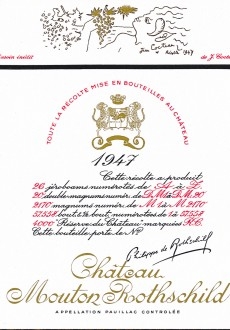 Jean Cocteau
1947
Dessin inédit
de J. Cocteau
TOUTE LA RÉCOLTE MISE EN BOUTEILLES AU CHÂTEAU
1947
Cette récolte a produit
26 jéroboams numérotés de A à Z
20 double magnums numér. de D.M à D.M 20
2170 magnums numér. de M 1 à M 2170
57558 bout. & ½ bout. numérotées de 1 à 57558
4000 "Réserve du Château" marquées R.C.
Cette bouteille porte le Nº
Philippe de Rothschild
Château
Mouton Rothschild
APPELLATION PAUILLAC CONTRÔLÉE